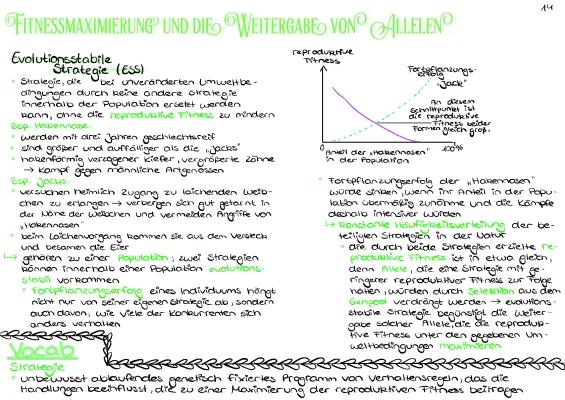 14
Fitnessmaximierung und die Weitergabe von Allelen
Evolutionsstabile
Strategie (ESS)
• Strategie, die bei unveränderten Umweltbe-
dingungen durch keine andere Strategie
innerhalb der Population ersetzt werden
kann, ohne die reproduktive Fitness zu mindern
Bsp. Hakennase:
• werden mit drei Jahren geschlechtsreif
• sind größer und auffälliger als die „Jacks"
• hakenförmig verzogener Kiefer, vergrößerte Zähne
→ Kampf gegen männliche Artgenossen
Bsp. Jacks:
• versuchen heimlich Zugang zu laichenden Weib-
chen zu erlangen → verbergen sich gut getarnt in
der Nähe der Weibchen und vermeiden Angriffe von
„Hakennasen"
• beim Laichvorgang kommen sie aus dem Versteck
und besamen die Eier
↳ gehören zu einer Population; zwei Strategien
können innerhalb einer Population evolutions-
stabil vorkommen
• Fortpflanzungserfolg eines Individuums hängt
nicht nur von seiner eigenen Strategie ab, sondern
auch davon, wie viele der Konkurrenten sich
anders verhalten
reproduktive
Fitness
Fortpflanzungs-
erfolg
"Jack"
An diesem
Schnittpunkt ist
die reproduktive
Fitness beider
Formen gleich groß.
0
100%
Anteil der „Hakennasen"
in der Population
• Fortpflanzungserfolg der „Hakennasen"
würde sinken, wenn ihr Anteil in der Popu-
lation übermäßig zunähme und die Kämpfe
deshalb intensiver würden
↳ Konstante Häufigkeitsverteilung der be-
teiligten Strategien in der Natur
• die durch beide Strategien erzielte re-
produktive Fitness ist in etwa gleich,
denn Allele, die eine Strategie mit ge-
ringerer reproduktiver Fitness zur Folge
hätten, würden durch Selektion aus dem
Genpool verdrängt werden → evolutions-
stabile Strategie begünstigt die Weiter-
gabe solcher Allele, die die reproduk-
tive Fitness unter den gegebenen Um-
weltbedingungen maximieren
Vocab
Strategie
• unbewusst ablaufendes genetisch fixiertes Programm von Verhaltensregeln, das die
Handlungen beeinflusst, die zu einer Maximierung der reproduktiven Fitness beitragen